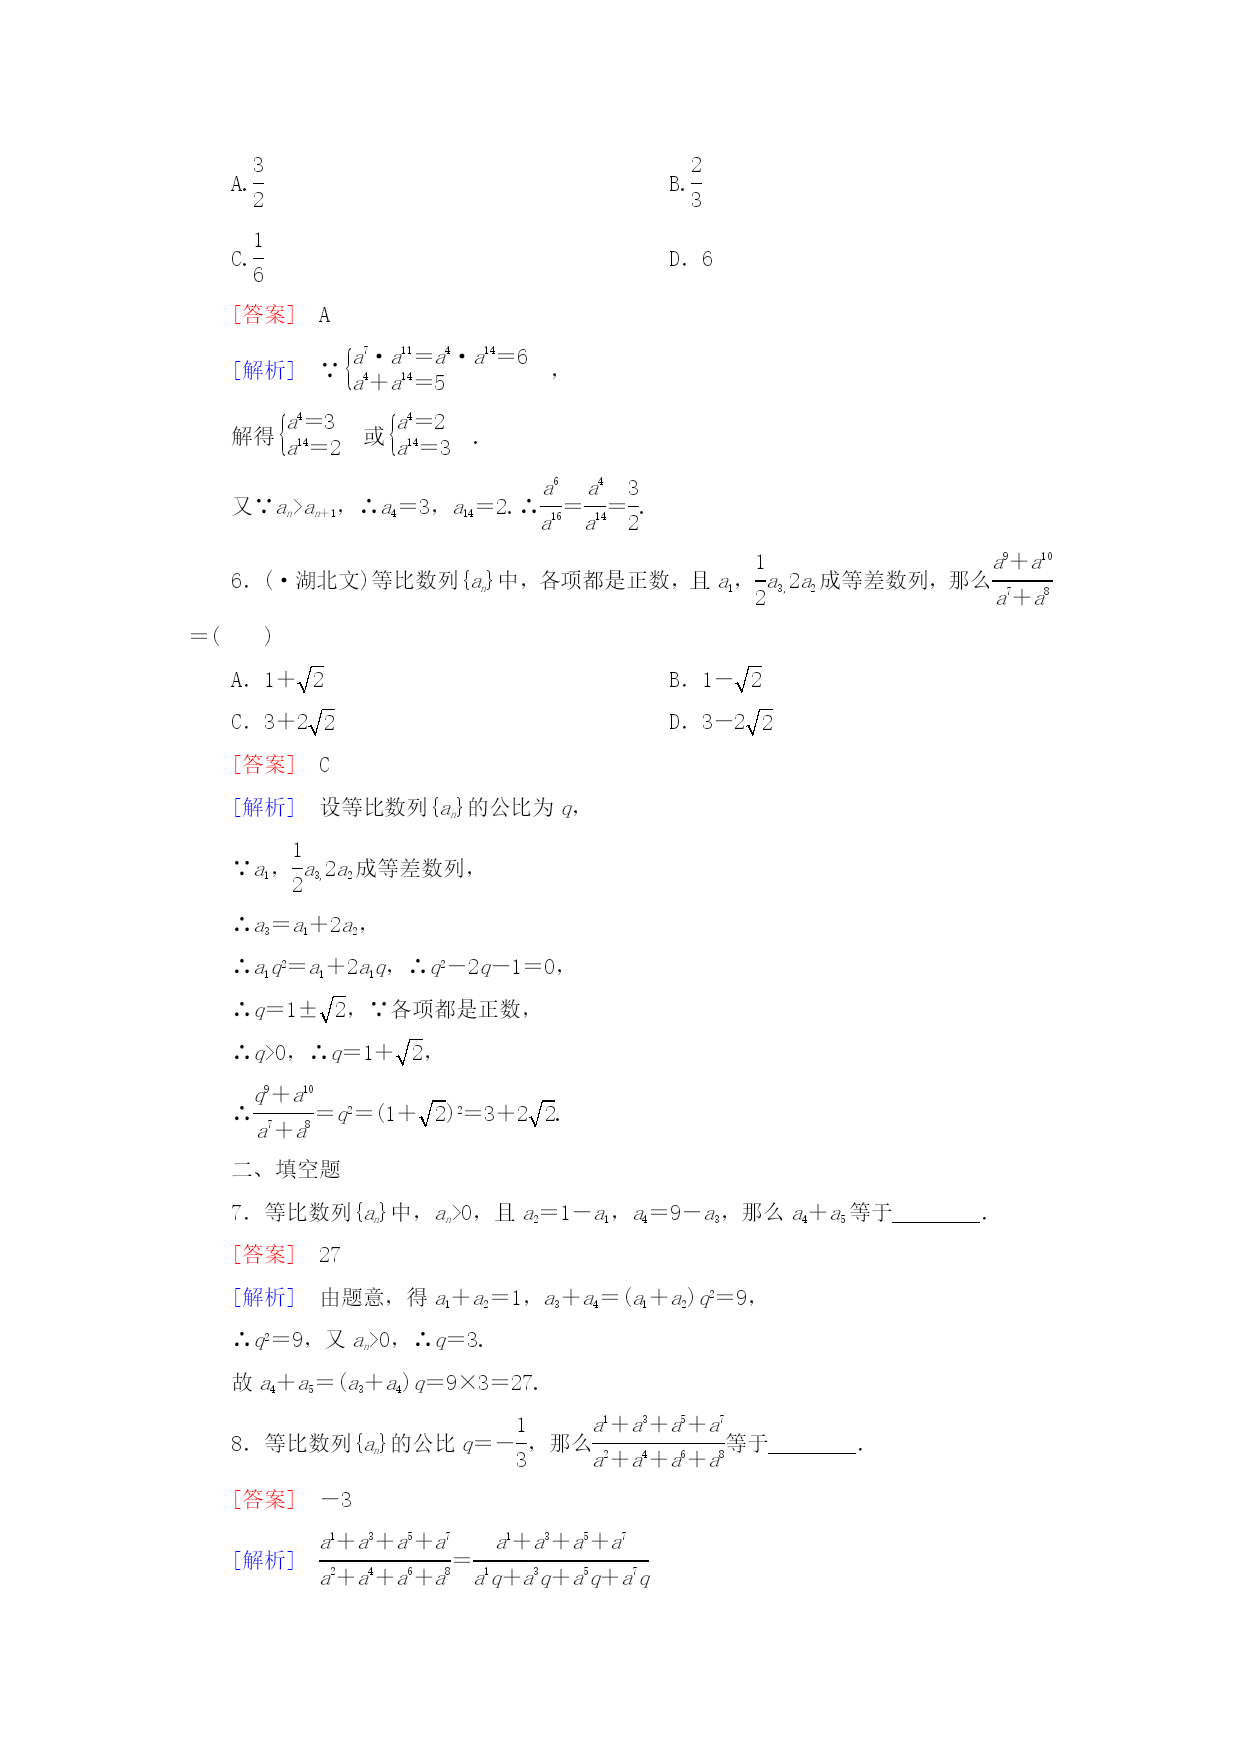 A.3/2　　B.2/3
C.1/6　　D．6
[答案]　A
[解析]　∵{a⁷·a¹¹＝a⁴·a¹⁴＝6　a⁴＋a¹⁴＝5，
解得{a⁴＝3　a¹⁴＝2 或{a⁴＝2　a¹⁴＝3．
又∵aₙ>aₙ₊₁，∴a₄＝3，a₁₄＝2.∴a⁶/a¹⁶＝a⁴/a¹⁴＝3/2.
6．(·湖北文)等比数列{aₙ}中，各项都是正数，且 a₁，1/2a₃,2a₂成等差数列，那么(a⁹＋a¹⁰)/(a⁷＋a⁸)
＝(　　)
A．1＋√2　　B．1－√2
C．3＋2√2　　D．3－2√2
[答案]　C
[解析]　设等比数列{aₙ}的公比为 q，
∵a₁，1/2a₃,2a₂成等差数列，
∴a₃＝a₁＋2a₂，
∴a₁q²＝a₁＋2a₁q，∴q²－2q－1＝0，
∴q＝1±√2，∵各项都是正数，
∴q>0，∴q＝1＋√2，
∴(q⁹＋a¹⁰)/(a⁷＋a⁸)＝q²＝(1＋√2)²＝3＋2√2.
二、填空题
7．等比数列{aₙ}中，aₙ>0，且 a₂＝1－a₁，a₄＝9－a₃，那么 a₄＋a₅等于________．
[答案]　27
[解析]　由题意，得 a₁＋a₂＝1，a₃＋a₄＝(a₁＋a₂)q²＝9，
∴q²＝9，又 aₙ>0，∴q＝3.
故 a₄＋a₅＝(a₃＋a₄)q＝9×3＝27.
8．等比数列{aₙ}的公比 q＝－1/3，那么(a¹＋a³＋a⁵＋a⁷)/(a²＋a⁴＋a⁶＋a⁸)等于________．
[答案]　－3
[解析]　(a¹＋a³＋a⁵＋a⁷)/(a²＋a⁴＋a⁶＋a⁸)＝(a¹＋a³＋a⁵＋a⁷)/(a¹q＋a³q＋a⁵q＋a⁷q)